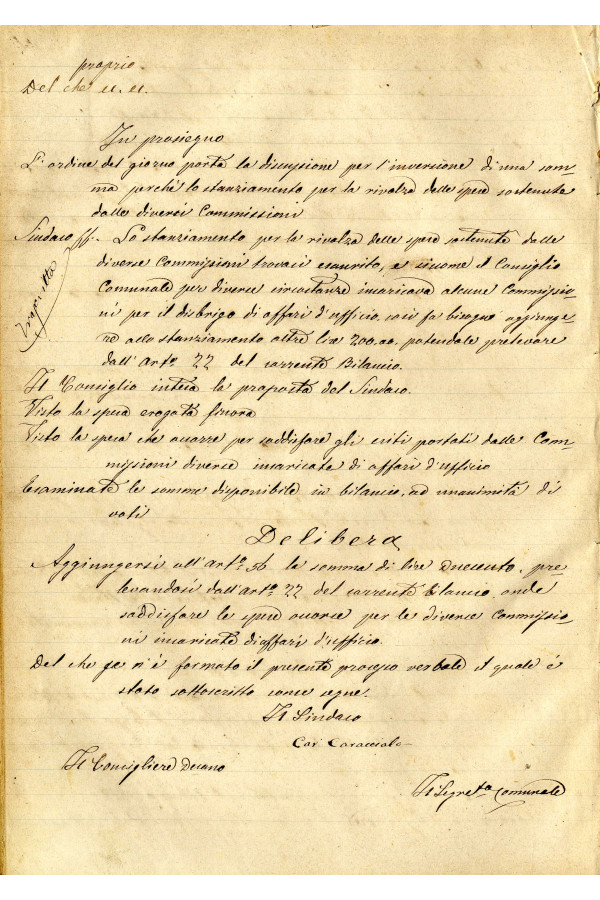 proprio.
Del che ec. ec.
In prosieguo
L'ordine del giorno porta la discussione per l'inversione di una som-
ma perchè lo stanziamento per la rivalza delle spese sostenute
dalle diversi Commissioni
Sindaco ff. Lo stanziamento per la rivalza delle spese sostenute dalle
diverse Commissioni trovasi esaurito, e siccome il Consiglio
Comunale per diverse circostanze incaricava alcune Commissio-
ni per il disbrigo di affari d'ufficio, così fa bisogno aggiunge-
re allo stanziamento altre lire 200,00, potendole prelevare
dall'Arto 22 del corrente Bilancio.
Il Consiglio intesa la proposta del Sindaco.
Visto la spesa erogata finora
Visto la spesa che occorre per soddisfare gli esiti portati dalle Com-
missioni diverse incaricate di affari d'ufficio
Esaminate le somme disponibile in bilancio, ad unanimità di
voti
Delibera
Aggiungersi all'arto 56 la somma di lire Duecento, pre-
levandosi dall'Arto 22 del corrente bilancio, onde
soddisfare le spese occorse per le diverse Commissio-
ni incaricate di affari d'ufficio.
Del che se n'è formato il presente processo verbale il quale è
stato sottoscritto come segue.
Il Sindaco
Cav. Caracciolo
Il Consigliere Decano
Il Segreto Comunale